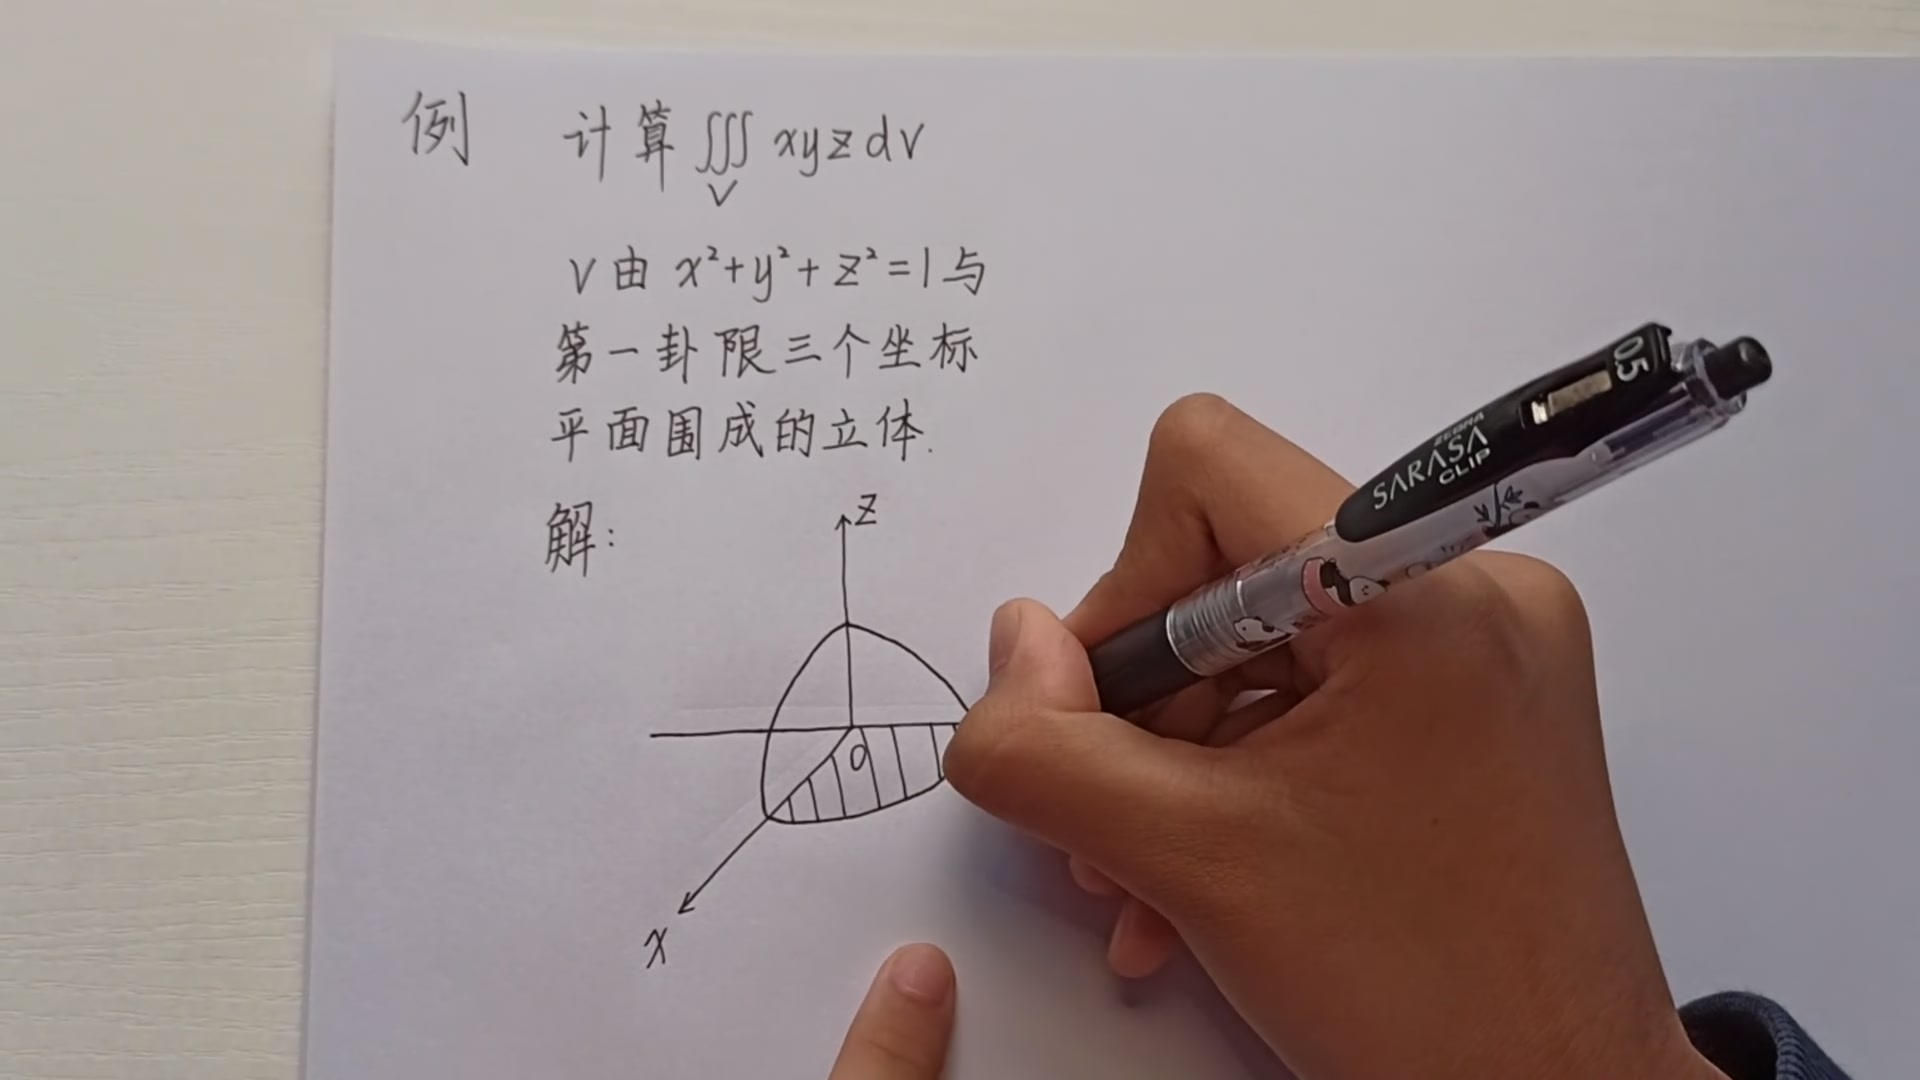 例 计算 ∭ xyz dV
V
V由 x²+y²+z²=1与
第一卦限三个坐标
平面围成的立体.
解:
z
O
x
0.5
ZEBRA
SARASA
CLIP